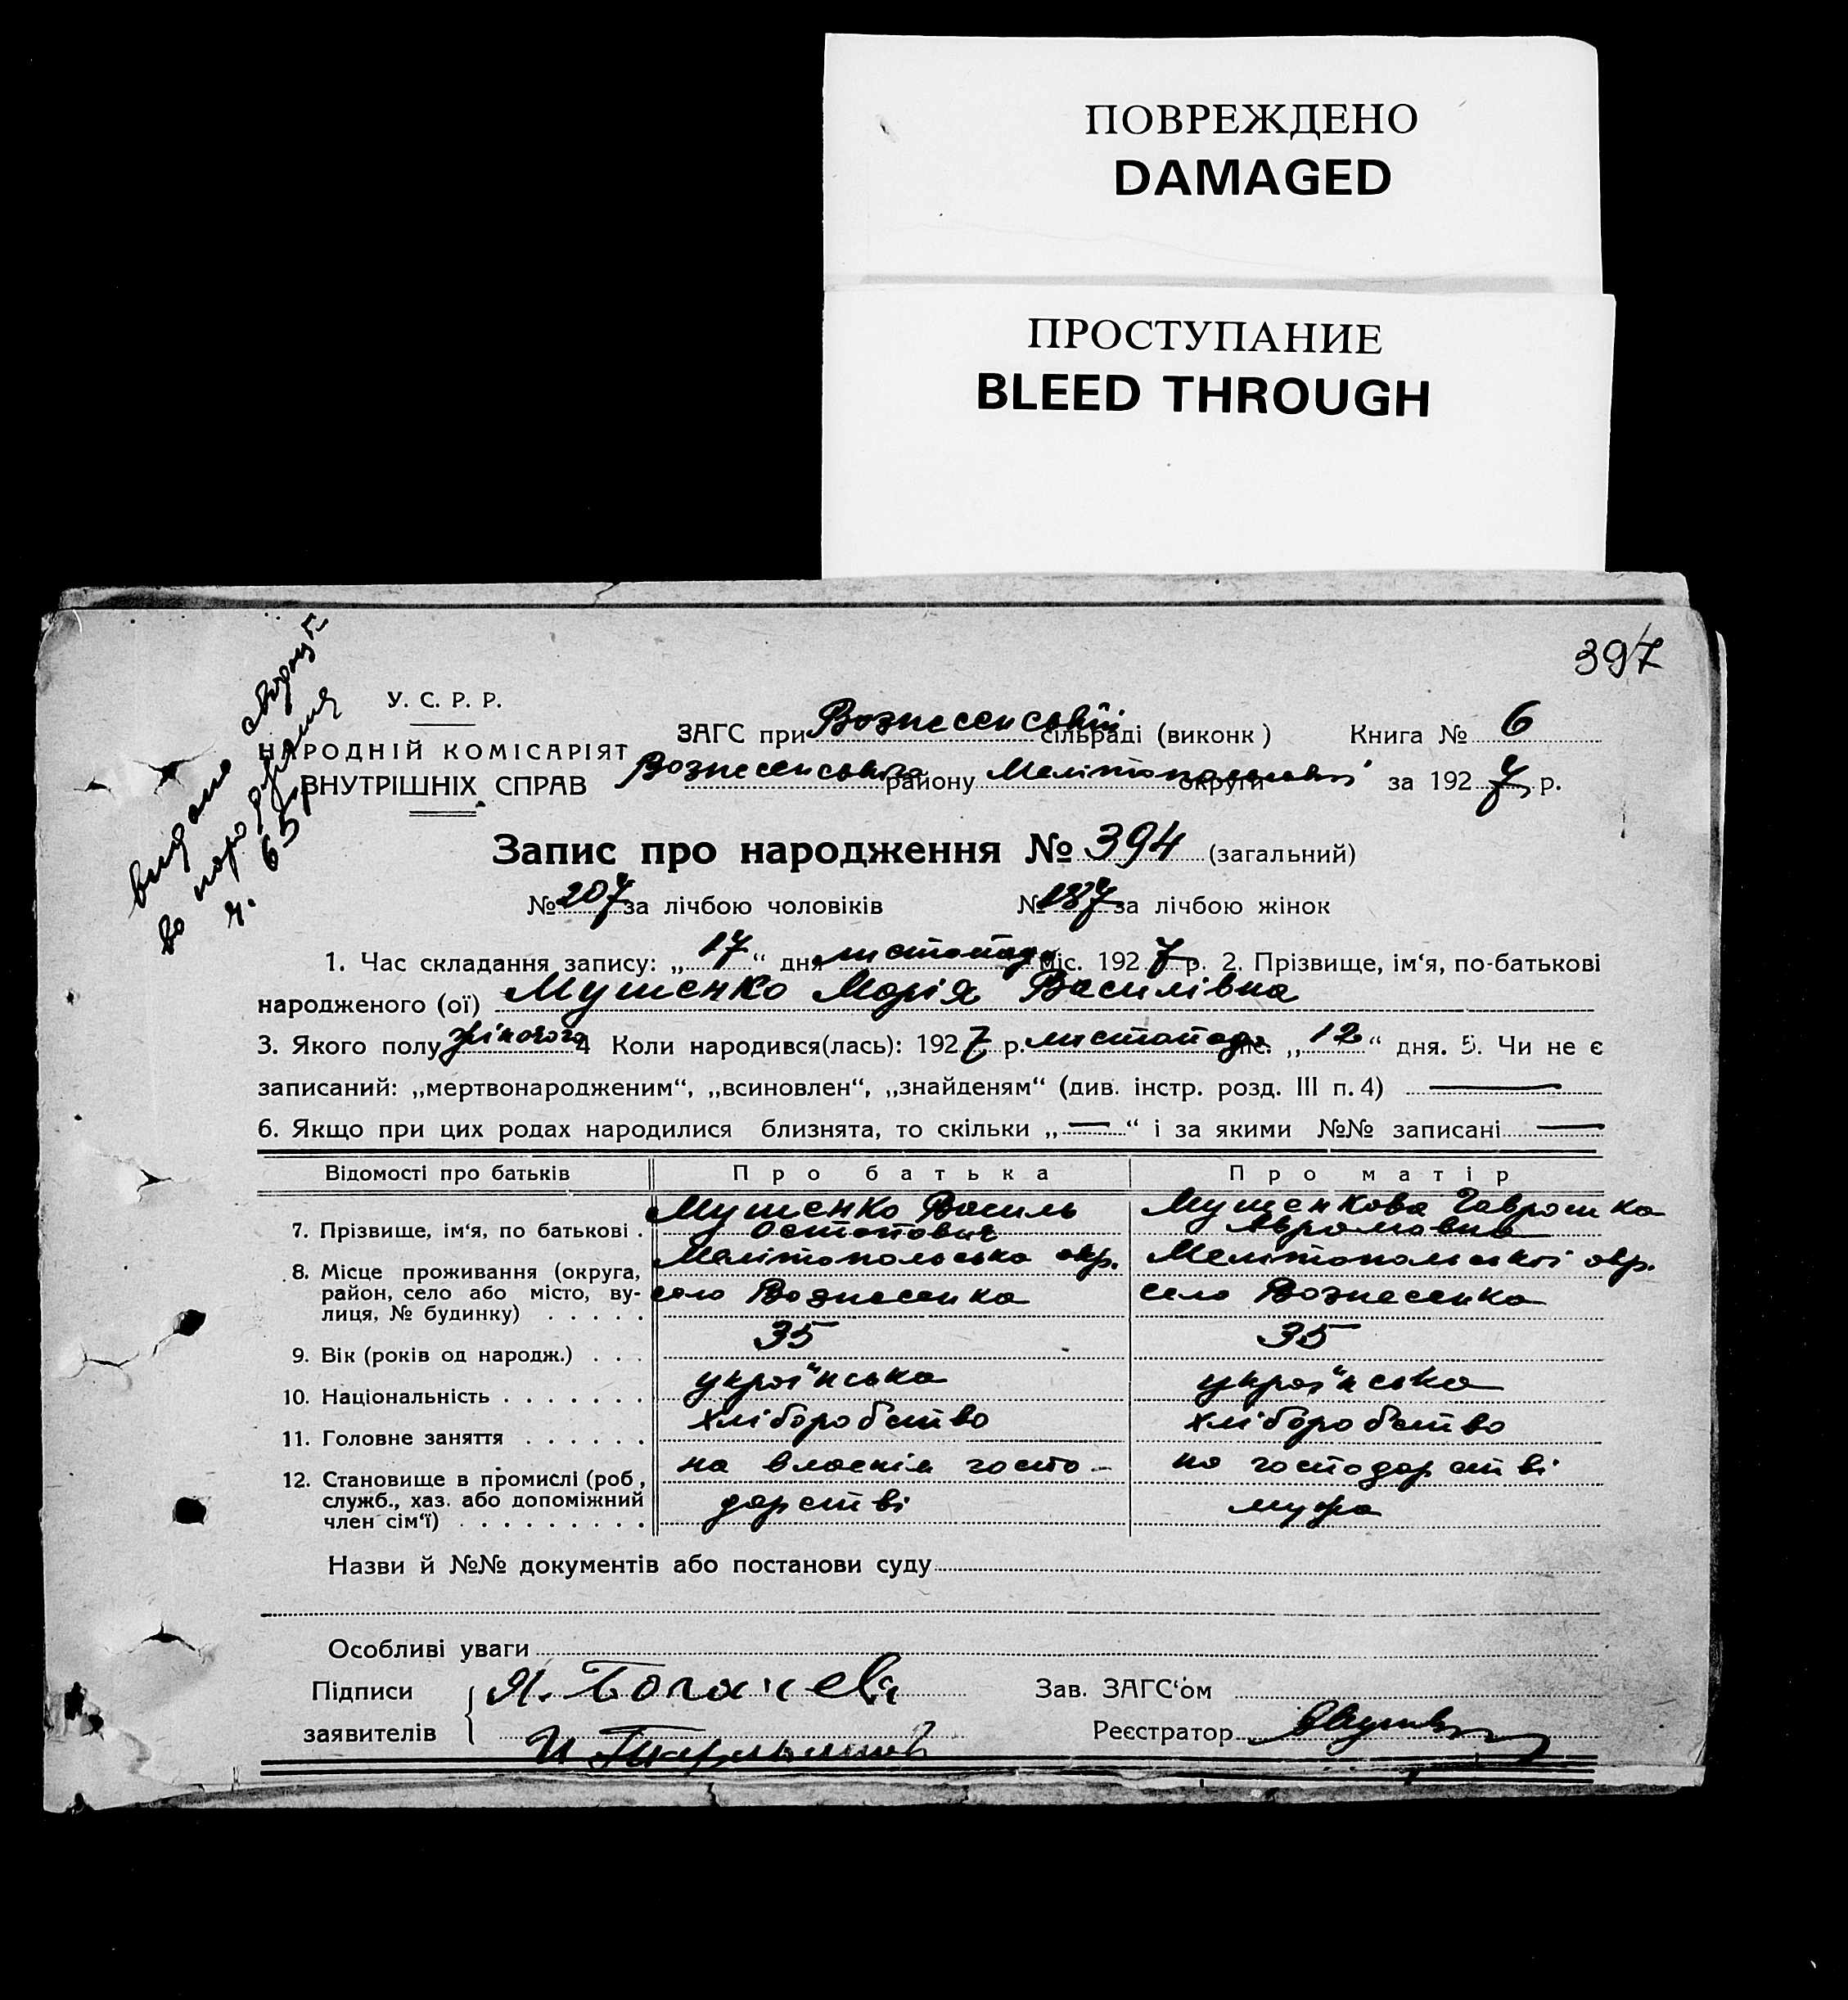 ПОВРЕЖДЕНО
DAMAGED
ПРОСТУПАНИЕ
BLEED THROUGH
397
видано
У. С. Р. Р.
НАРОДНІЙ КОМІСАРІЯТ
ВНУТРІШНІХ СПРАВ
ЗАГС при Вознесенській сільраді (виконк) Книга № 6
Вознесенського району Мелітопольської округи за 1927 р.
Запис про народження № 394 (загальний)
№ 207 за лічбою чоловіків № 187 за лічбою жінок
1. Час складання запису: „17“ дня листопада міс. 1927 р. 2. Прізвище, ім'я, по-батькові
народженого (ої) Мушенко Марія Василівна
3. Якого полу жіночого 4 Коли народився(лась): 1927 р. листопада міс. „12“ дня. 5. Чи не є
записаний: „мертвонародженим“, „всиновлен“, „знайденям“ (див. інстр. розд. III п. 4) —
6. Якщо при цих родах народилися близнята, то скільки „—“ і за якими №№ записані —
Відомості про батьків Про батька Про матір
7. Прізвище, ім'я, по батькові . Мушенко Василь Остапович Мушенкова
8. Місце проживання (округа, район, село або місто, вулиця, № будинку) . . . . . Мелітопольська окр. село Вознесенка Мелітопольської окр. село Вознесенка
9. Вік (років од народж.) . . . 35 35
10. Національність . . . . . . . українська українська
11. Головне заняття . . . . . . хліборобство хліборобство
12. Становище в промислі (роб, служб., хаз. або допоміжний член сім'ї) . . . . . . . . . на власнім господарстві на господарстві мужа
Назви й №№ документів або постанови суду
Особливі уваги
Підписи
заявителів
Зав. ЗАГС'ом
Реєстратор